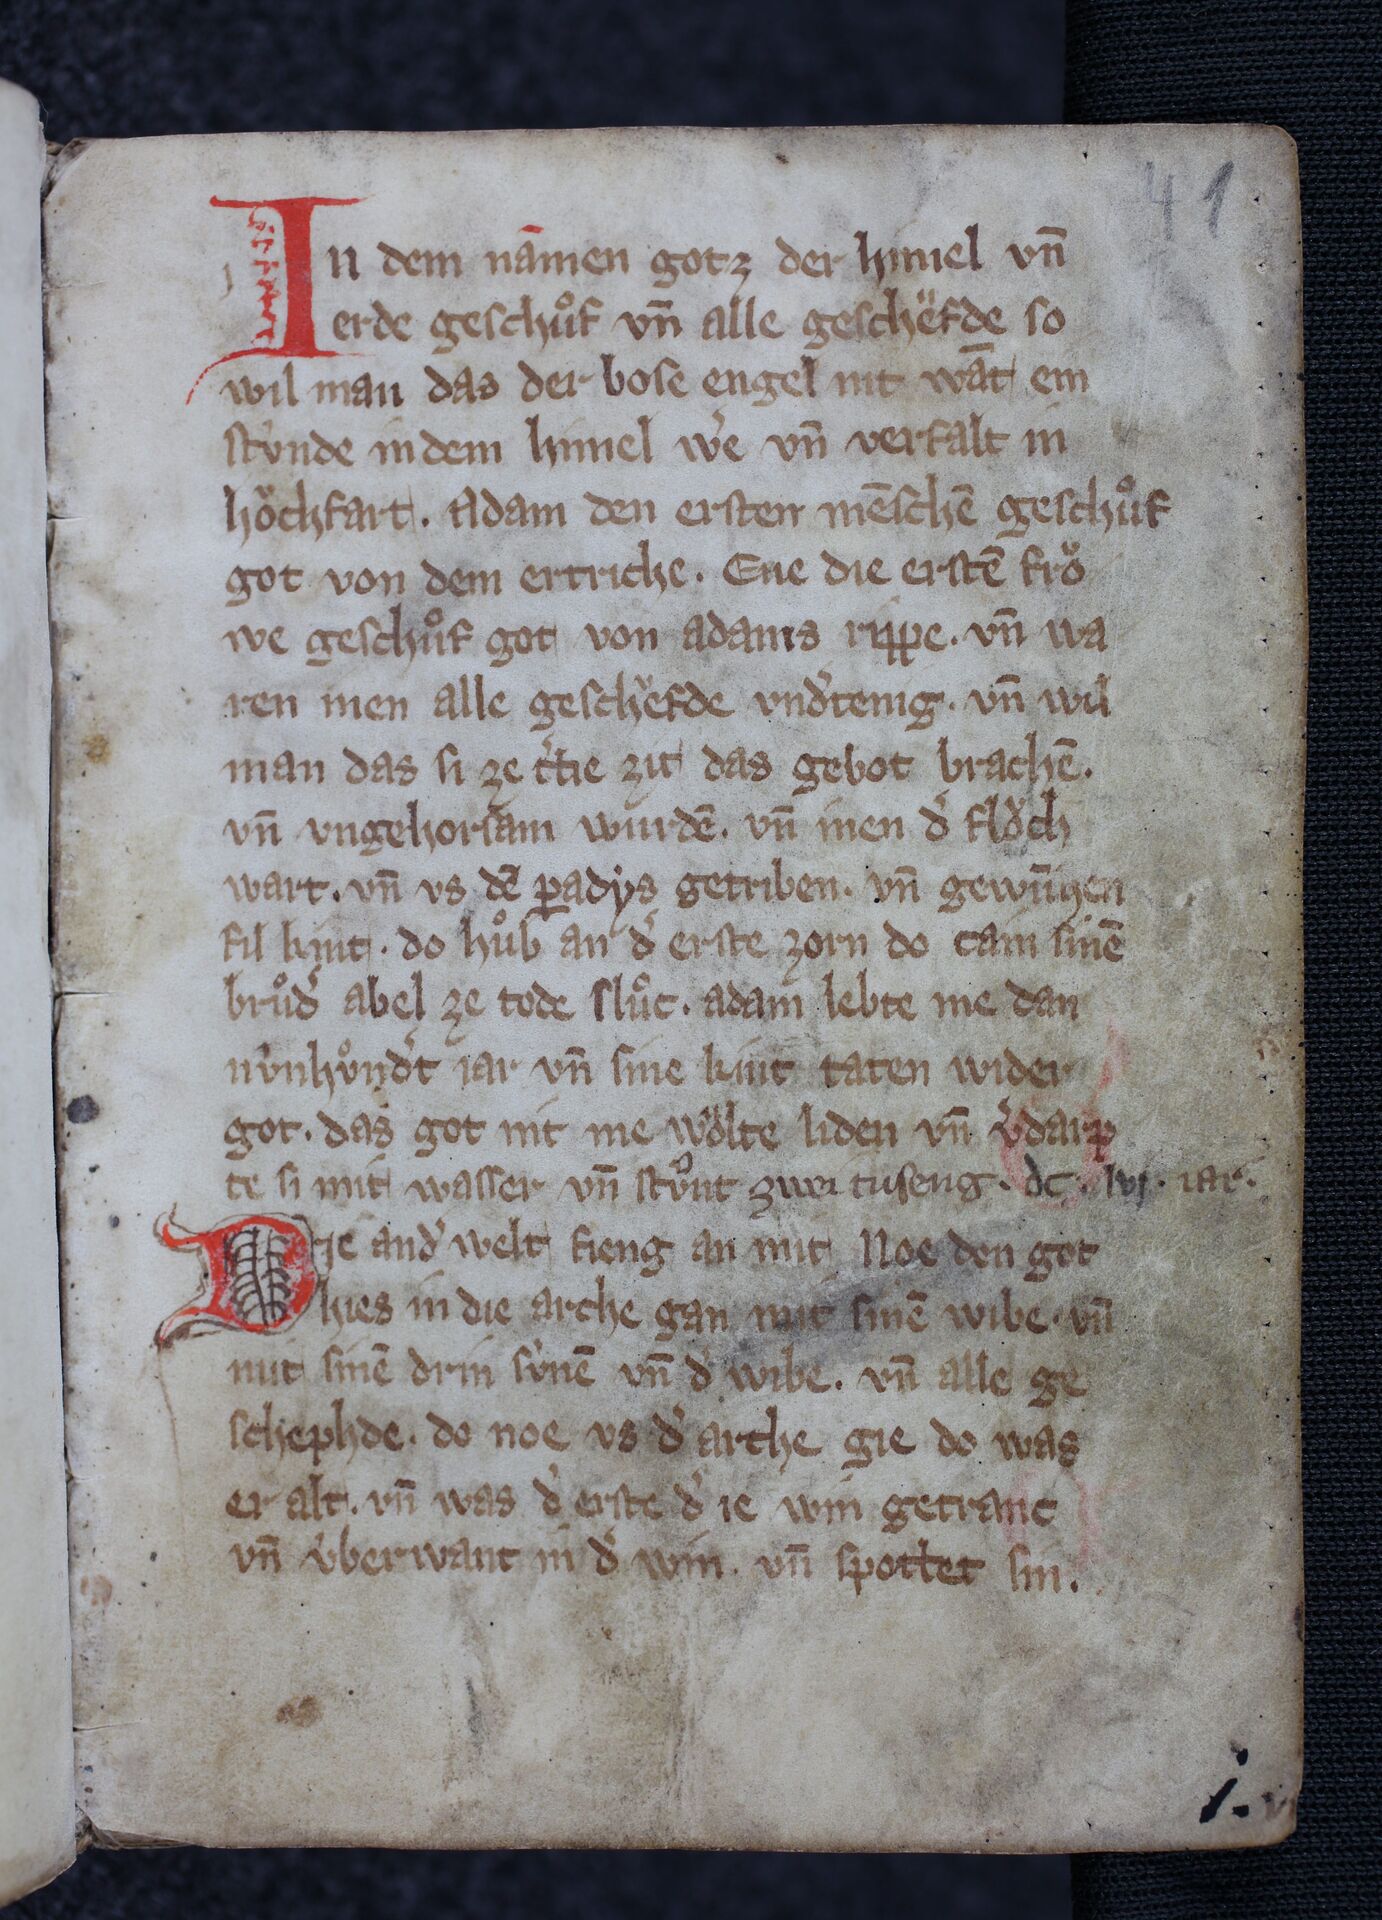 41
In dem nāmen gotz der himel vn̄
erde geschůf vn̄ alle geschëfde so
wil man das der bose engel nit wāt ein
stunde in dem himel we vn̄ verfalt in
höchfart. Adam den ersten mēschē geschůf
got von dem ertriche. Eue die erstē frö
we geschůf got von adams rippe. vn̄ wa
ren inen alle geschefde vnd̓tenig. vn̄ wil
man das si ze zit das gebot brachē.
vn̄ vngehorsam wurdē. vn̄ inen d̓ flöch
wart. vn̄ vs dē ꝑadys getriben. vn̄ gewūnen
fil kint. do hůb an d̓ erste zorn do cain sinē
brůd̓ abel ze tode slůc. adam lebte me dan
nunhund̓t iar vn̄ sine kint taten wider
got. das got nit me wölte liden vn̄ v̓darp
te si mit wasser vn̄ stůnt zwei tuseng. dc. lvj. iar.
Die and̓ welt fieng an mit Noe den got
hies in die arche gan mit sinē wibe. vn̄
mit sinē drin sunē vn̄ d̓ wibe. vn̄ alle ge
schephde. do noe vs d̓ arche gie do was
er alt. vn̄ was d̓ erste d̓ ie win getranc
vn̄ vberwant in d̓ win. vn̄ spottet sin.
i.